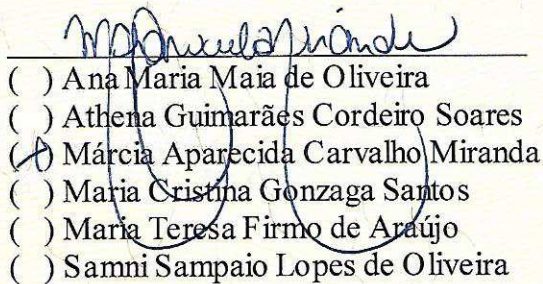 ( ) Ana Maria Maia de Oliveira
( ) Athena Guimarães Cordeiro Soares
(X) Márcia Aparecida Carvalho Miranda
( ) Maria Cristina Gonzaga Santos
( ) Maria Teresa Firmo de Araújo
( ) Samni Sampaio Lopes de Oliveira